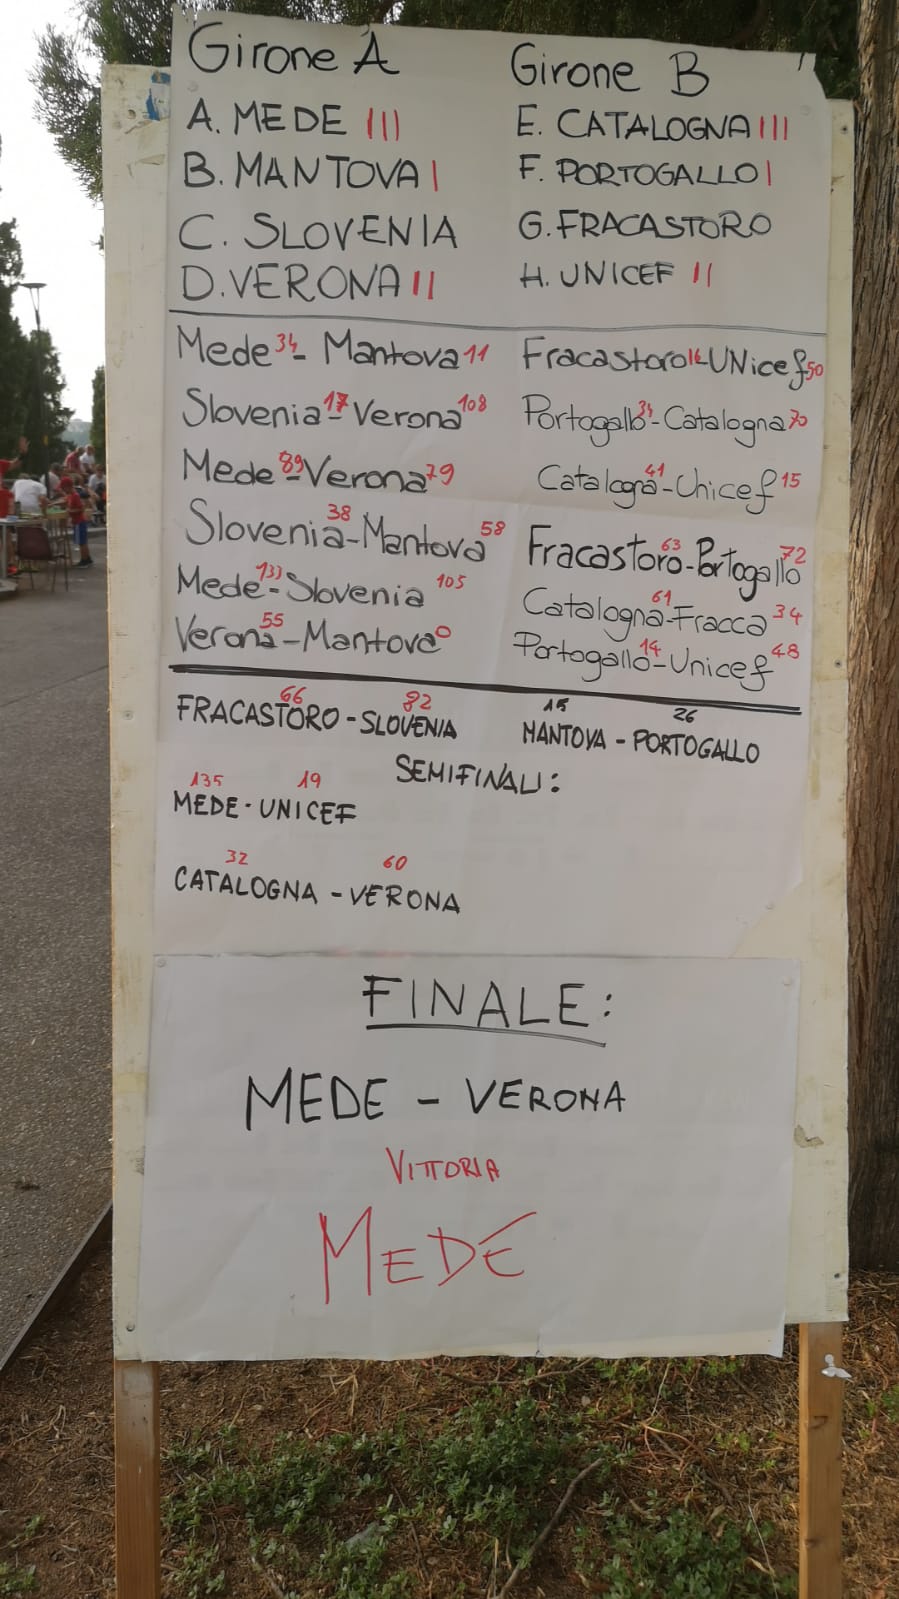 Girone A
A. MEDE III
B. MANTOVA I
C. SLOVENIA
D. VERONA II
Girone B
E. CATALOGNA III
F. PORTOGALLO I
G. FRACASTORO
H. UNICEF II
Mede 34 - Mantova 11
Slovenia 17 - Verona 108
Mede 89 - Verona 79
Slovenia 38 - Mantova 58
Mede 133 - Slovenia 105
Verona 55 - Mantova 0
Fracastoro 16 - UNicef 50
Portogallo 34 - Catalogna 70
Catalogna 41 - Unicef 15
Fracastoro 63 - Portogallo 72
Catalogna 61 - Fracca 34
Portogallo 14 - Unicef 48
66 82
FRACASTORO - SLOVENIA
15 26
MANTOVA - PORTOGALLO
SEMIFINALI:
135 19
MEDE - UNICEF
32 60
CATALOGNA - VERONA
FINALE:
MEDE - VERONA
VITTORIA
MEDE